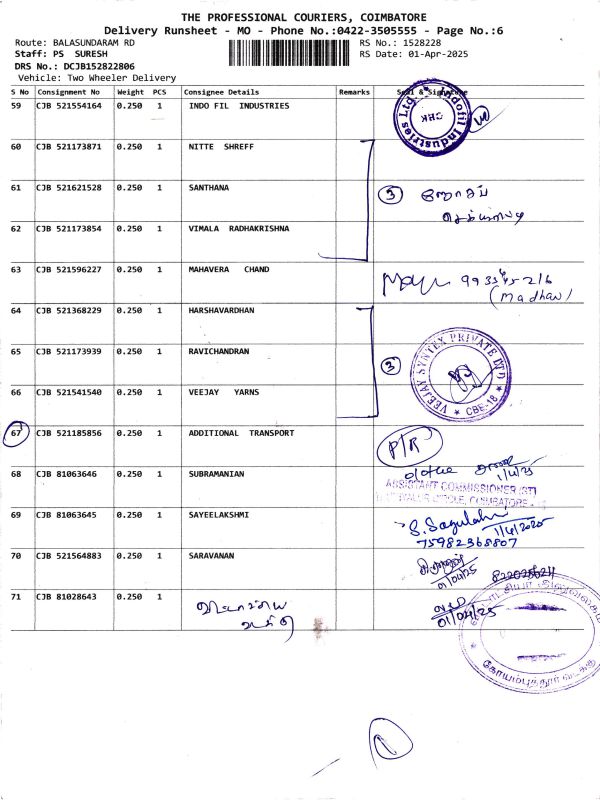 THE PROFESSIONAL COURIERS, COIMBATORE
Delivery Runsheet - MO - Phone No.:0422-3505555 - Page No.:6
Route: BALASUNDARAM RD RS No.: 1528228
Staff: PS SURESH RS Date: 01-Apr-2025
DRS No.: DCJB152822806
Vehicle: Two Wheeler Delivery
S No Consignment No Weight PCS Consignee Details Remarks Seal & Signature
59 CJB 521554164 0.250 1 INDO FIL INDUSTRIES
Indofil Industries Ltd.
60 CJB 521173871 0.250 1 NITTE SHREFF
61 CJB 521621528 0.250 1 SANTHANA 3
62 CJB 521173854 0.250 1 VIMALA RADHAKRISHNA
63 CJB 521596227 0.250 1 MAHAVERA CHAND
(Madhav)
64 CJB 521368229 0.250 1 HARSHAVARDHAN
65 CJB 521173939 0.250 1 RAVICHANDRAN 3
VEEJAY SYNTEX PRIVATE LTD
* CBE-18 *
66 CJB 521541540 0.250 1 VEEJAY YARNS
67 CJB 521185856 0.250 1 ADDITIONAL TRANSPORT P/R
1/4/25
68 CJB 81063646 0.250 1 SUBRAMANIAN
ASSISTANT COMMISSIONER (ST)
CIRCLE, COIMBATORE
69 CJB 81063645 0.250 1 SAYEELAKSHMI
1/4/2025
75982368807
70 CJB 521564883 0.250 1 SARAVANAN
01/04/25
71 CJB 81028643 0.250 1
01/04/25
கோயம்புத்தூர் வடக்கு